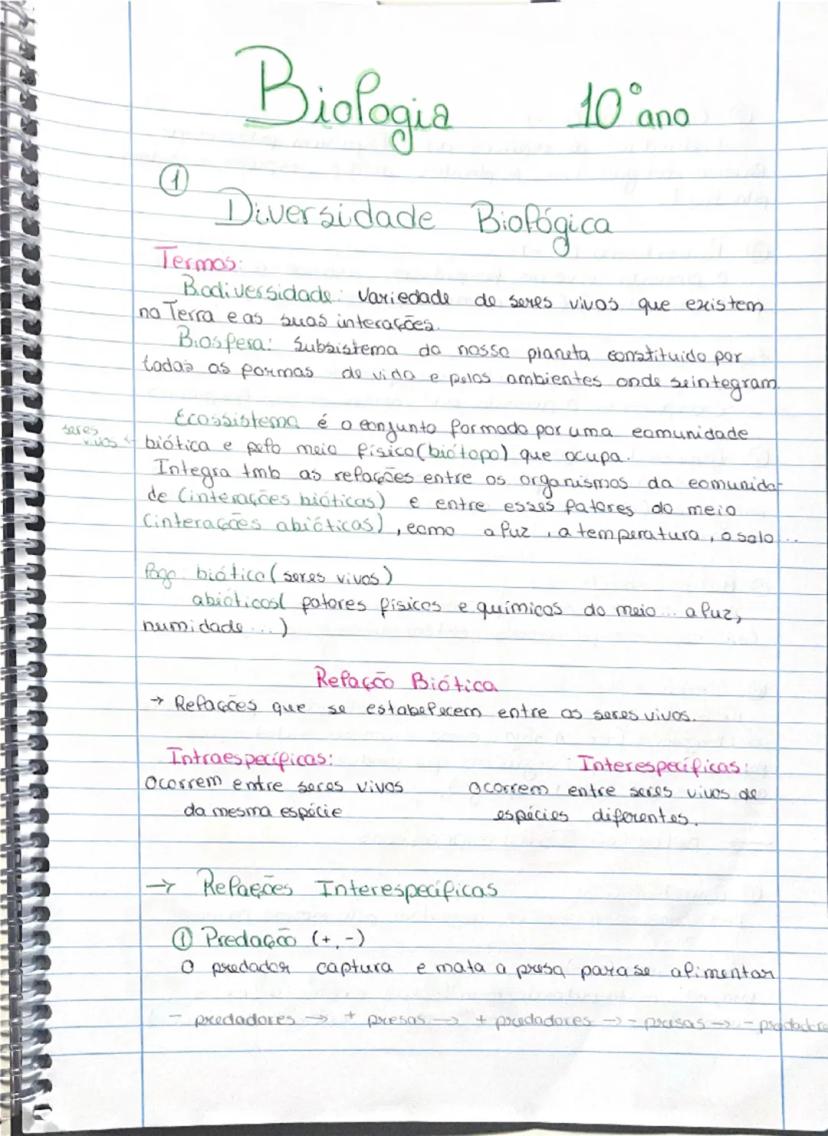 Biologia 10° ano
①
Diversidade Biológica
Termos:
Biodiversidade: Variedade de seres vivos que existem
na Terra e as suas interações.
Biosfera: Subsistema do nosso planeta constituido por
todas as formas de vida e pelos ambientes onde se integram
Ecossistema é o conjunto formado por uma comunidade
seres vivos ← biótica e pelo meio físico (biótopo) que ocupa.
Integra tmb as relações entre os organismos da comunida-
de (interações bióticas) e entre esses fatores do meio
(interações abióticas), como a luz, a temperatura, o solo...
Logo: biótico (seres vivos)
abióticos ( fatores físicos e químicos do meio... a luz,
humidade...)
Relação Biótica
→ Relações que se estabelecem entre os seres vivos.
Intraespecíficas: Interespecíficas:
Ocorrem entre seres vivos Ocorrem entre seres vivos de
da mesma espécie espécies diferentes.
→ Relações Interespecíficas
① Predação (+, -)
O predador captura e mata a presa para se alimentar
- predadores → + presas → + predadores → - presas → - predadores